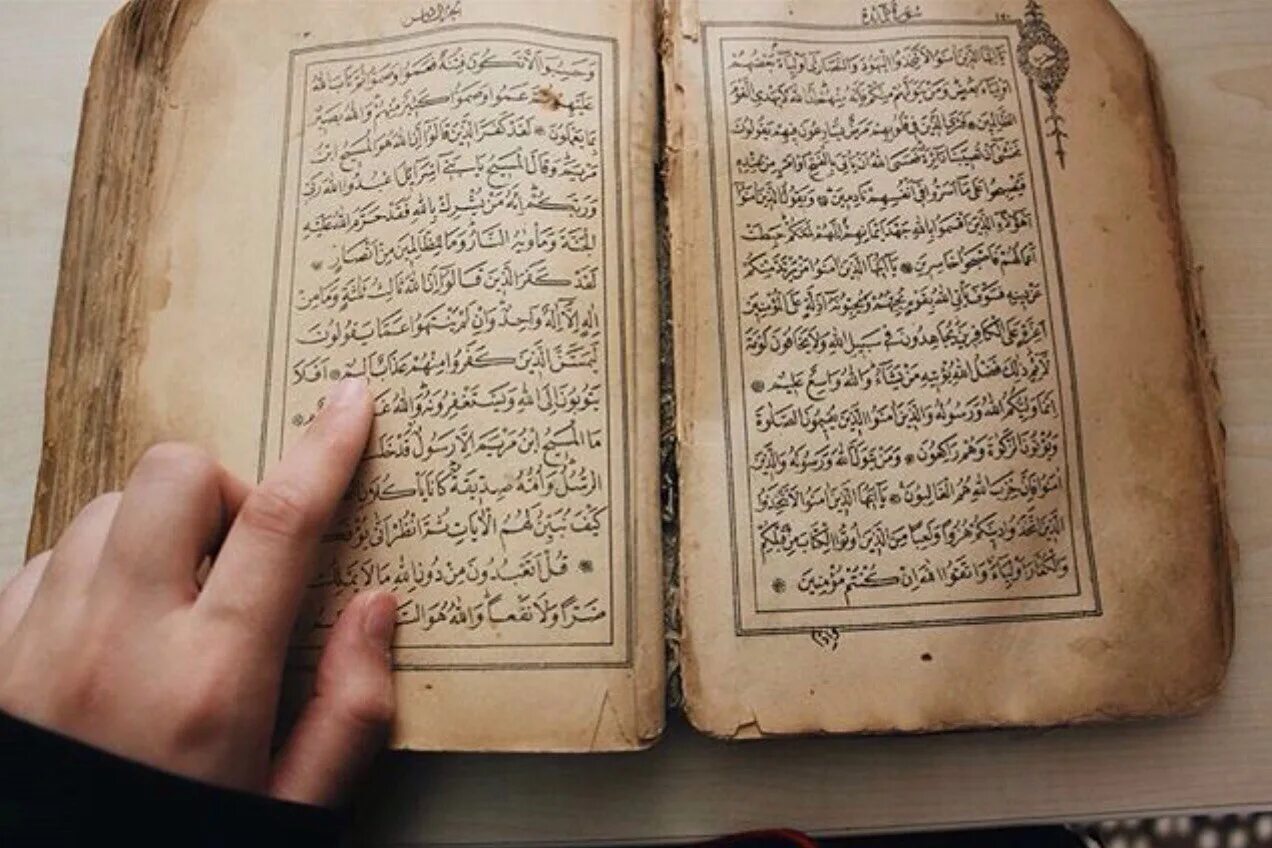 سورة المائدة
يَٓا اَيُّهَا الَّذٖينَ اٰمَنُوا لَا تَتَّخِذُوا الْيَهُودَ وَالنَّصَارٰٓى اَوْلِيَٓاءَ بَعْضُهُمْ
اَوْلِيَٓاءُ بَعْضٍ وَمَنْ يَتَوَلَّهُمْ مِنْكُمْ فَاِنَّهُ مِنْهُمْ اِنَّ اللّٰهَ لَا يَهْدِي الْقَوْمَ
الظَّالِمٖينَ ۞ فَتَرَى الَّذٖينَ فٖي قُلُوبِهِمْ مَرَضٌ يُسَارِعُونَ فٖيهِمْ يَقُولُونَ
نَخْشٰٓى اَنْ تُصٖيبَنَا دَٓائِرَةٌ فَعَسَى اللّٰهُ اَنْ يَاْتِيَ بِالْفَتْحِ اَوْ اَمْرٍ مِنْ عِنْدِهٖ
فَيُصْبِحُوا عَلٰى مَٓا اَسَرُّوا فٖٓي اَنْفُسِهِمْ نَادِمٖينَ ۞ وَيَقُولُ الَّذٖينَ اٰمَنُٓوا
اَهٰٓؤُلَٓاءِ الَّذٖينَ اَقْسَمُوا بِاللّٰهِ جَهْدَ اَيْمَانِهِمْ اِنَّهُمْ لَمَعَكُمْ حَبِطَتْ
اَعْمَالُهُمْ فَاَصْبَحُوا خَاسِرٖينَ ۞ يَٓا اَيُّهَا الَّذٖينَ اٰمَنُوا مَنْ يَرْتَدَّ مِنْكُمْ
عَنْ دٖينِهٖ فَسَوْفَ يَاْتِي اللّٰهُ بِقَوْمٍ يُحِبُّهُمْ وَيُحِبُّونَهُٓ اَذِلَّةٍ عَلَى الْمُؤْمِنٖينَ
اَعِزَّةٍ عَلَى الْكَافِرٖينَ يُجَاهِدُونَ فٖي سَبٖيلِ اللّٰهِ وَلَا يَخَافُونَ لَوْمَةَ
لَٓائِمٍ ذٰلِكَ فَضْلُ اللّٰهِ يُؤْتٖيهِ مَنْ يَشَٓاءُ وَاللّٰهُ وَاسِعٌ عَلٖيمٌ ۞
اِنَّمَا وَلِيُّكُمُ اللّٰهُ وَرَسُولُهُ وَالَّذٖينَ اٰمَنُوا الَّذٖينَ يُقٖيمُونَ الصَّلٰوةَ
وَيُؤْتُونَ الزَّكٰوةَ وَهُمْ رَاكِعُونَ ۞ وَمَنْ يَتَوَلَّ اللّٰهَ وَرَسُولَهُ وَالَّذٖينَ
اٰمَنُوا فَاِنَّ حِزْبَ اللّٰهِ هُمُ الْغَالِبُونَ ۞ يَٓا اَيُّهَا الَّذٖينَ اٰمَنُوا لَا تَتَّخِذُوا
الَّذٖينَ اتَّخَذُوا دٖينَكُمْ هُزُوًا وَلَعِبًا مِنَ الَّذٖينَ اُوتُوا الْكِتَابَ مِنْ قَبْلِكُمْ
وَالْكُفَّارَ اَوْلِيَٓاءَ وَاتَّقُوا اللّٰهَ اِنْ كُنْتُمْ مُؤْمِنٖينَ ۞
وَحَسِبُٓوا اَلَّا تَكُونَ فِتْنَةٌ فَعَمُوا وَصَمُّوا ثُمَّ تَابَ اللّٰهُ
عَلَيْهِمْ ثُمَّ عَمُوا وَصَمُّوا كَثٖيرٌ مِنْهُمْ وَاللّٰهُ بَصٖيرٌ
بِمَا يَعْمَلُونَ ۞ لَقَدْ كَفَرَ الَّذٖينَ قَالُٓوا اِنَّ اللّٰهَ هُوَ الْمَسٖيحُ ابْنُ
مَرْيَمَ وَقَالَ الْمَسٖيحُ يَا بَنٖٓي اِسْرَٓائٖيلَ اعْبُدُوا اللّٰهَ رَبّٖي
وَرَبَّكُمْ اِنَّهُ مَنْ يُشْرِكْ بِاللّٰهِ فَقَدْ حَرَّمَ اللّٰهُ عَلَيْهِ
الْجَنَّةَ وَمَاْوٰيهُ النَّارُ وَمَا لِلظَّالِمٖينَ مِنْ اَنْصَارٍ ۞
لَقَدْ كَفَرَ الَّذٖينَ قَالُٓوا اِنَّ اللّٰهَ ثَالِثُ ثَلٰثَةٍ وَمَا مِنْ
اِلٰهٍ اِلَّٓا اِلٰهٌ وَاحِدٌ وَاِنْ لَمْ يَنْتَهُوا عَمَّا يَقُولُونَ
لَيَمَسَّنَّ الَّذٖينَ كَفَرُوا مِنْهُمْ عَذَابٌ اَلٖيمٌ ۞ اَفَلَا
يَتُوبُونَ اِلَى اللّٰهِ وَيَسْتَغْفِرُونَهُ وَاللّٰهُ
مَا الْمَسٖيحُ ابْنُ مَرْيَمَ اِلَّا رَسُولٌ قَدْ خَلَتْ
الرُّسُلُ وَاُمُّهُ صِدّٖيقَةٌ كَانَا يَاْكُلَانِ
كَيْفَ نُبَيِّنُ لَهُمُ الْاٰيَاتِ ثُمَّ انْظُرْ اَنّٰى يُؤْفَكُونَ
۞ قُلْ اَتَعْبُدُونَ مِنْ دُونِ اللّٰهِ مَا لَا يَمْلِكُ
ضَرًّا وَلَا نَفْعًا وَاللّٰهُ هُوَ